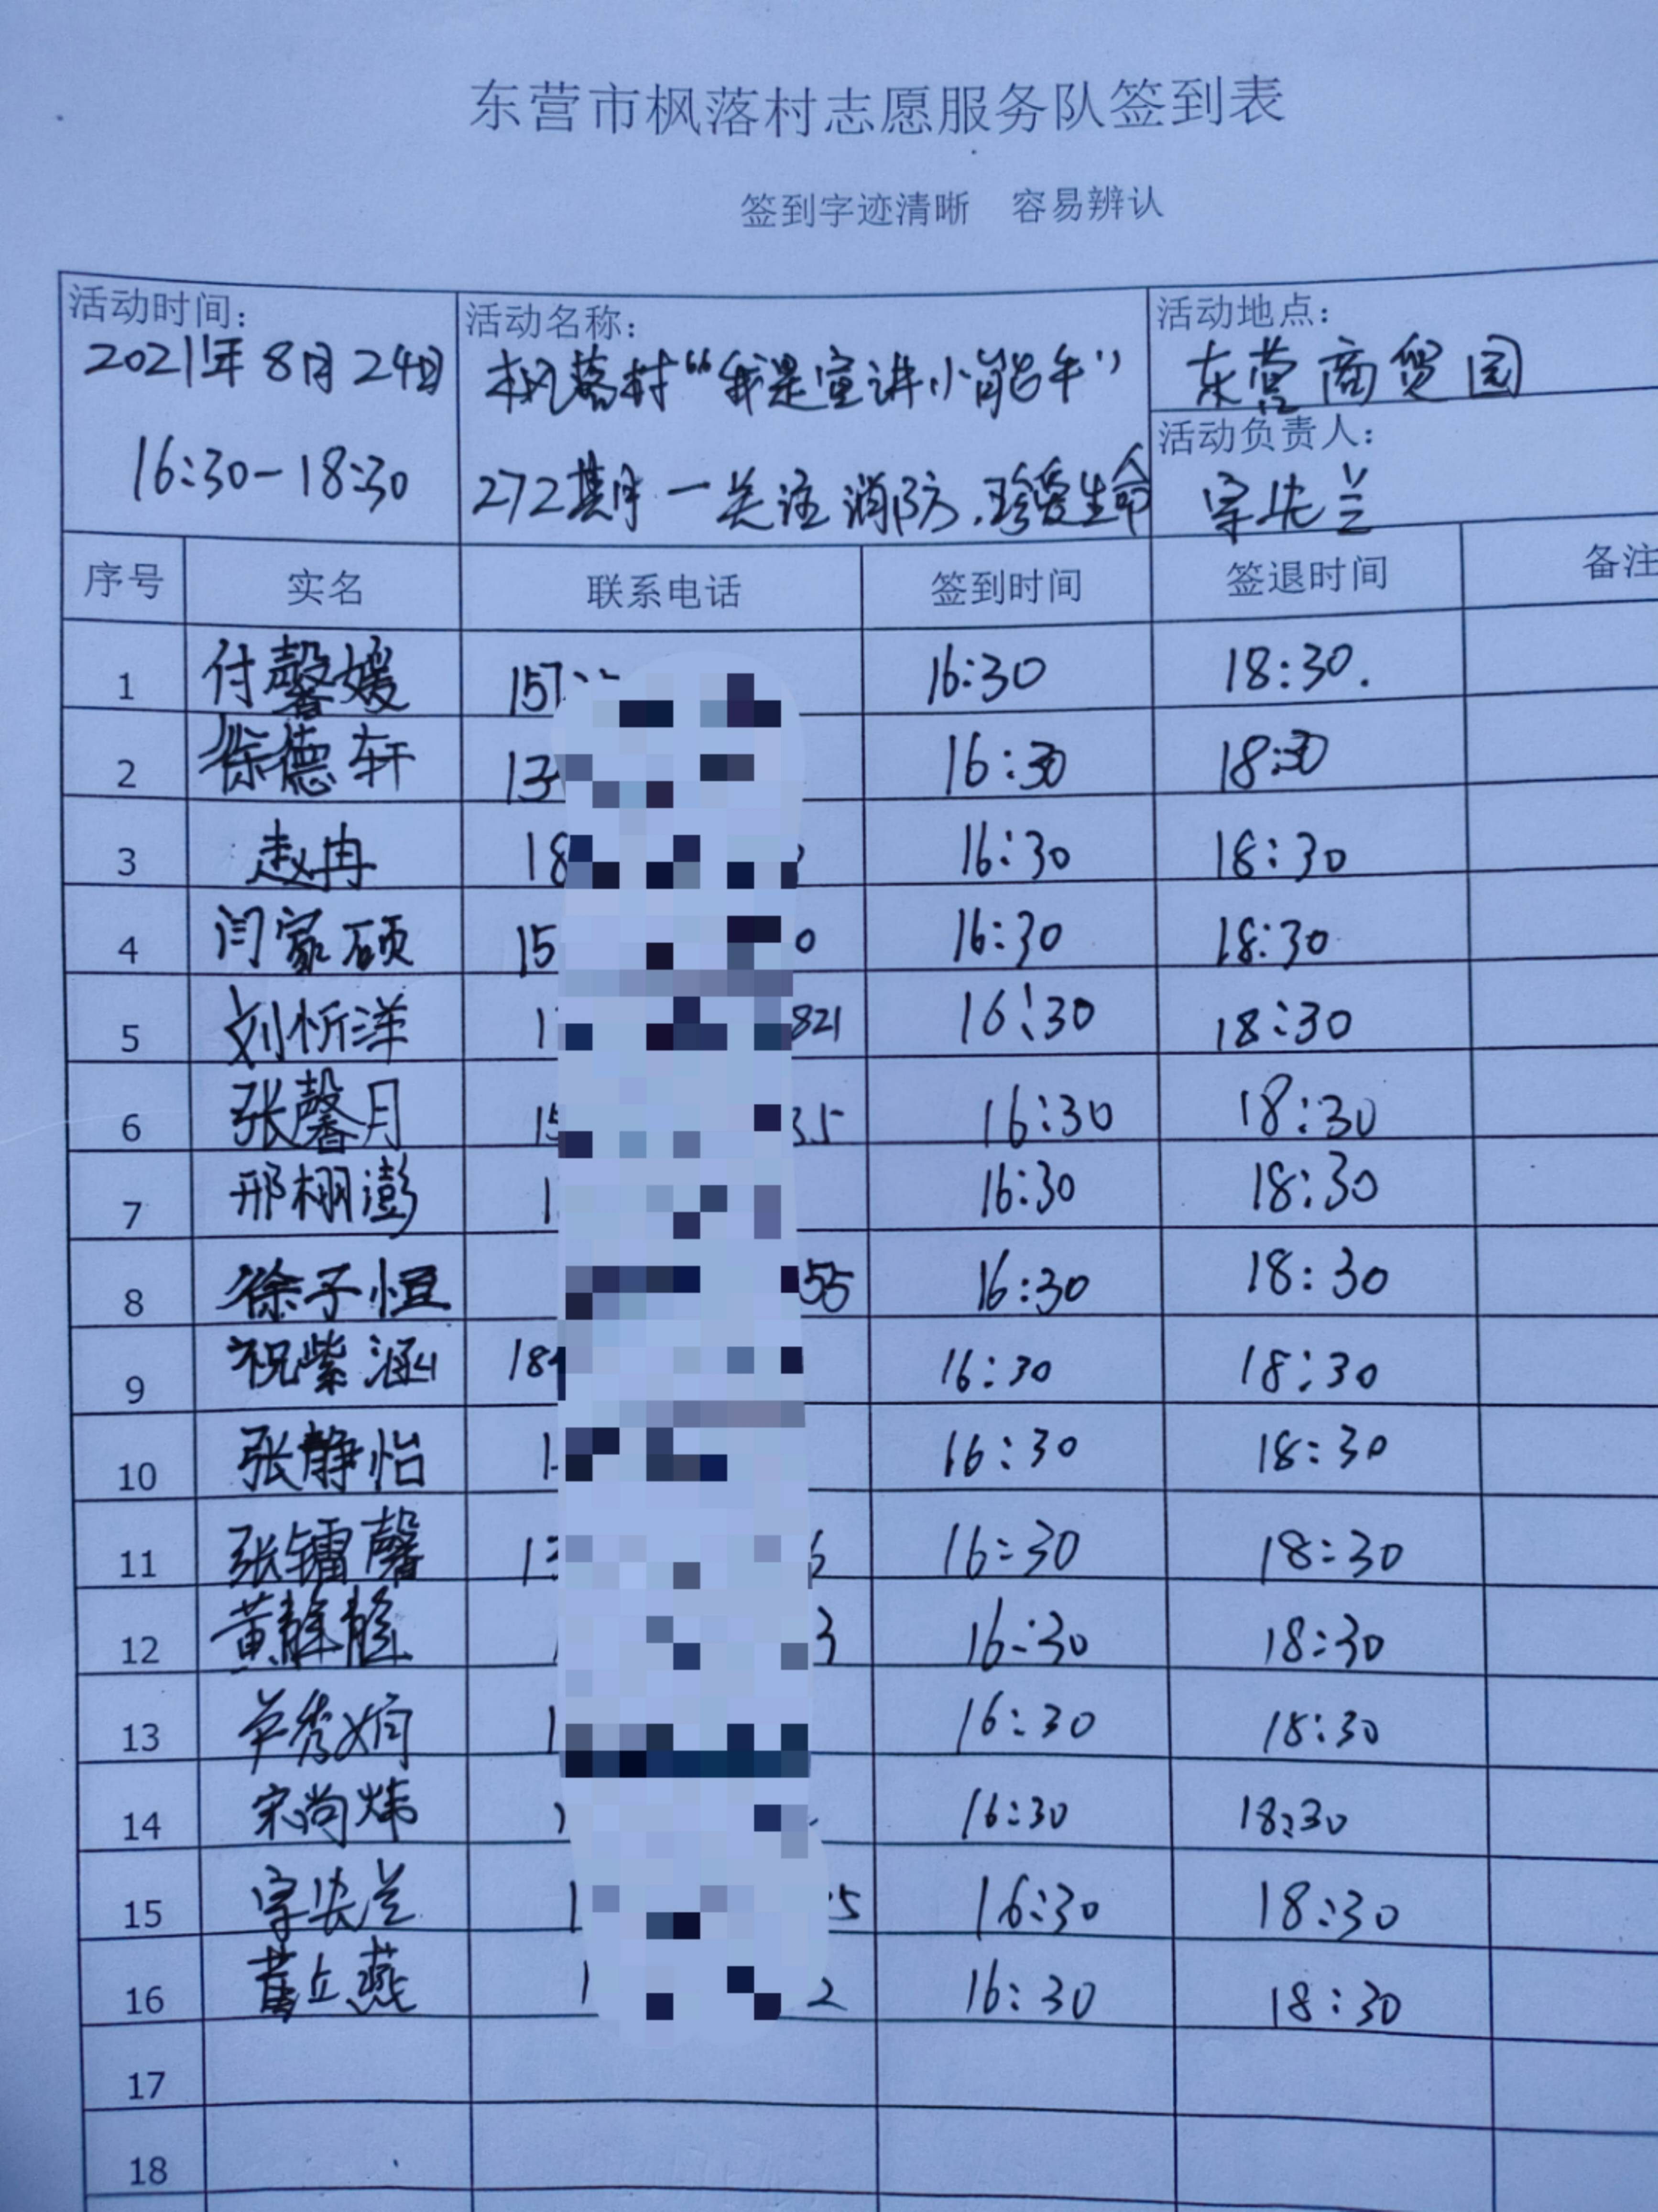 东营市枫落村志愿服务队签到表
签到字迹清晰 容易辨认
活动时间:
2021年8月24日
16:30-18:30
活动名称:
枫落村“我是宣讲小能手”
272期—关注消防,珍爱生命
活动地点:
东营商贸园
活动负责人:
兰
序号 实名 联系电话 签到时间 签退时间 备注
1 付馨媛 157 16:30 18:30.
2 徐德轩 13 16:30 18:30
3 赵冉 18 16:30 18:30
4 闫家硕 15 0 16:30 18:30
5 刘忻洋 1 821 16:30 18:30
6 张馨月 15 35 16:30 18:30
7 邢栩澎 1 16:30 18:30
8 徐子恒 55 16:30 18:30
9 祝紫涵 18 16:30 18:30
10 张静怡 1 16:30 18:30
11 张镭馨 13 6 16:30 18:30
12 黄静 1 3 16:30 18:30
13 秀娟 1 16:30 18:30
14 宋尚炜 16:30 18:30
15 兰 1 5 16:30 18:30
16 燕 1 2 16:30 18:30
17
18